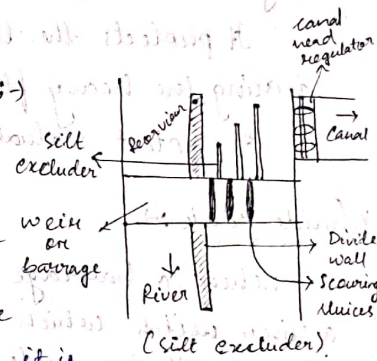 canal
head
regulator
:-)
Reservior
→
Canal
Silt
excluder
weir
or
barrage
↓
River
Divide
wall
Scouring
sluices
(silt excluder)
it is